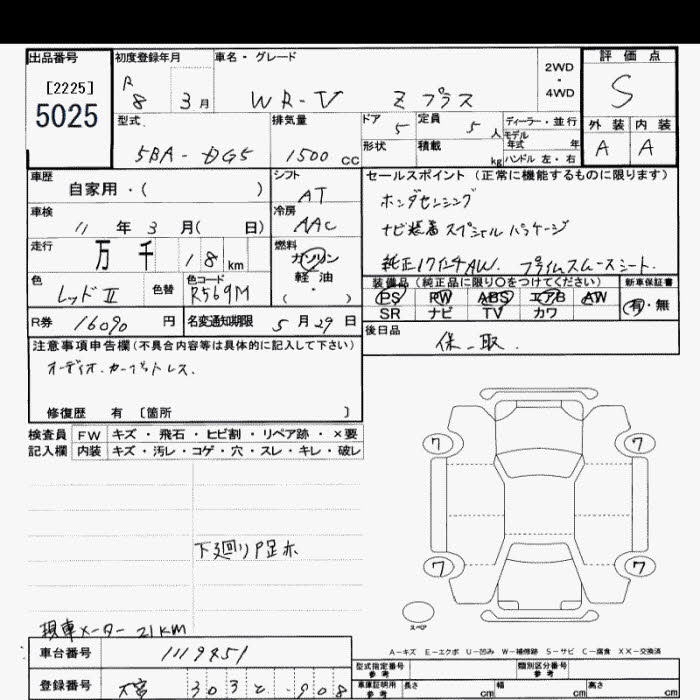 出品番号
[2225]
5025
初度登録年月
R 8 3月
車名・グレード
WR-V Z プラス
2WD
・
4WD
評価点
S
外装 内装
A A
型式
5BA-DG5
排気量
1500 cc
ドア 5
定員 5 人
ディーラー・並行
モデル年式 年
形状
積載 kg
ハンドル 左・右
車歴
自家用・( )
シフト
AT
セールスポイント (正常に機能するものに限ります)
ホンダセンシング
ナビ装着スペシャルパッケージ
純正17インチAW. プライムスムースシート.
車検
11年3月( 日)
冷房
AAC
走行
万 千 18 km
燃料
ガソリン
軽・油
( )
色
レッドII
色替
色コード
R569M
装備品 (純正品に限り〇をつけてください)
PS PW ABS エアB AW
SR ナビ TV カワ
新車保証書
有・無
R券 16090 円
名変通知期限 5月29日
後日品
保.取.
注意事項申告欄 (不具合内容等は具体的に記入して下さい)
オーディオ.カーペットレス.
修復歴 有 〔箇所 〕
検査員 FW キズ・飛石・ヒビ割・リペア跡・×要
記入欄 内装 キズ・汚レ・コゲ・穴・スレ・キレ・破レ
7 7
7 7
スペア
現車メーター 21KM
A-キズ E-エクボ U-凹み W-補修跡 S-サビ C-腐食 XX-交換済
車台番号 1119851
登録番号 大宮 303 と ・908
型式指定番号
参考
類別区分番号
参考
車庫証明用
参考
長さ cm 幅 cm 高さ cm